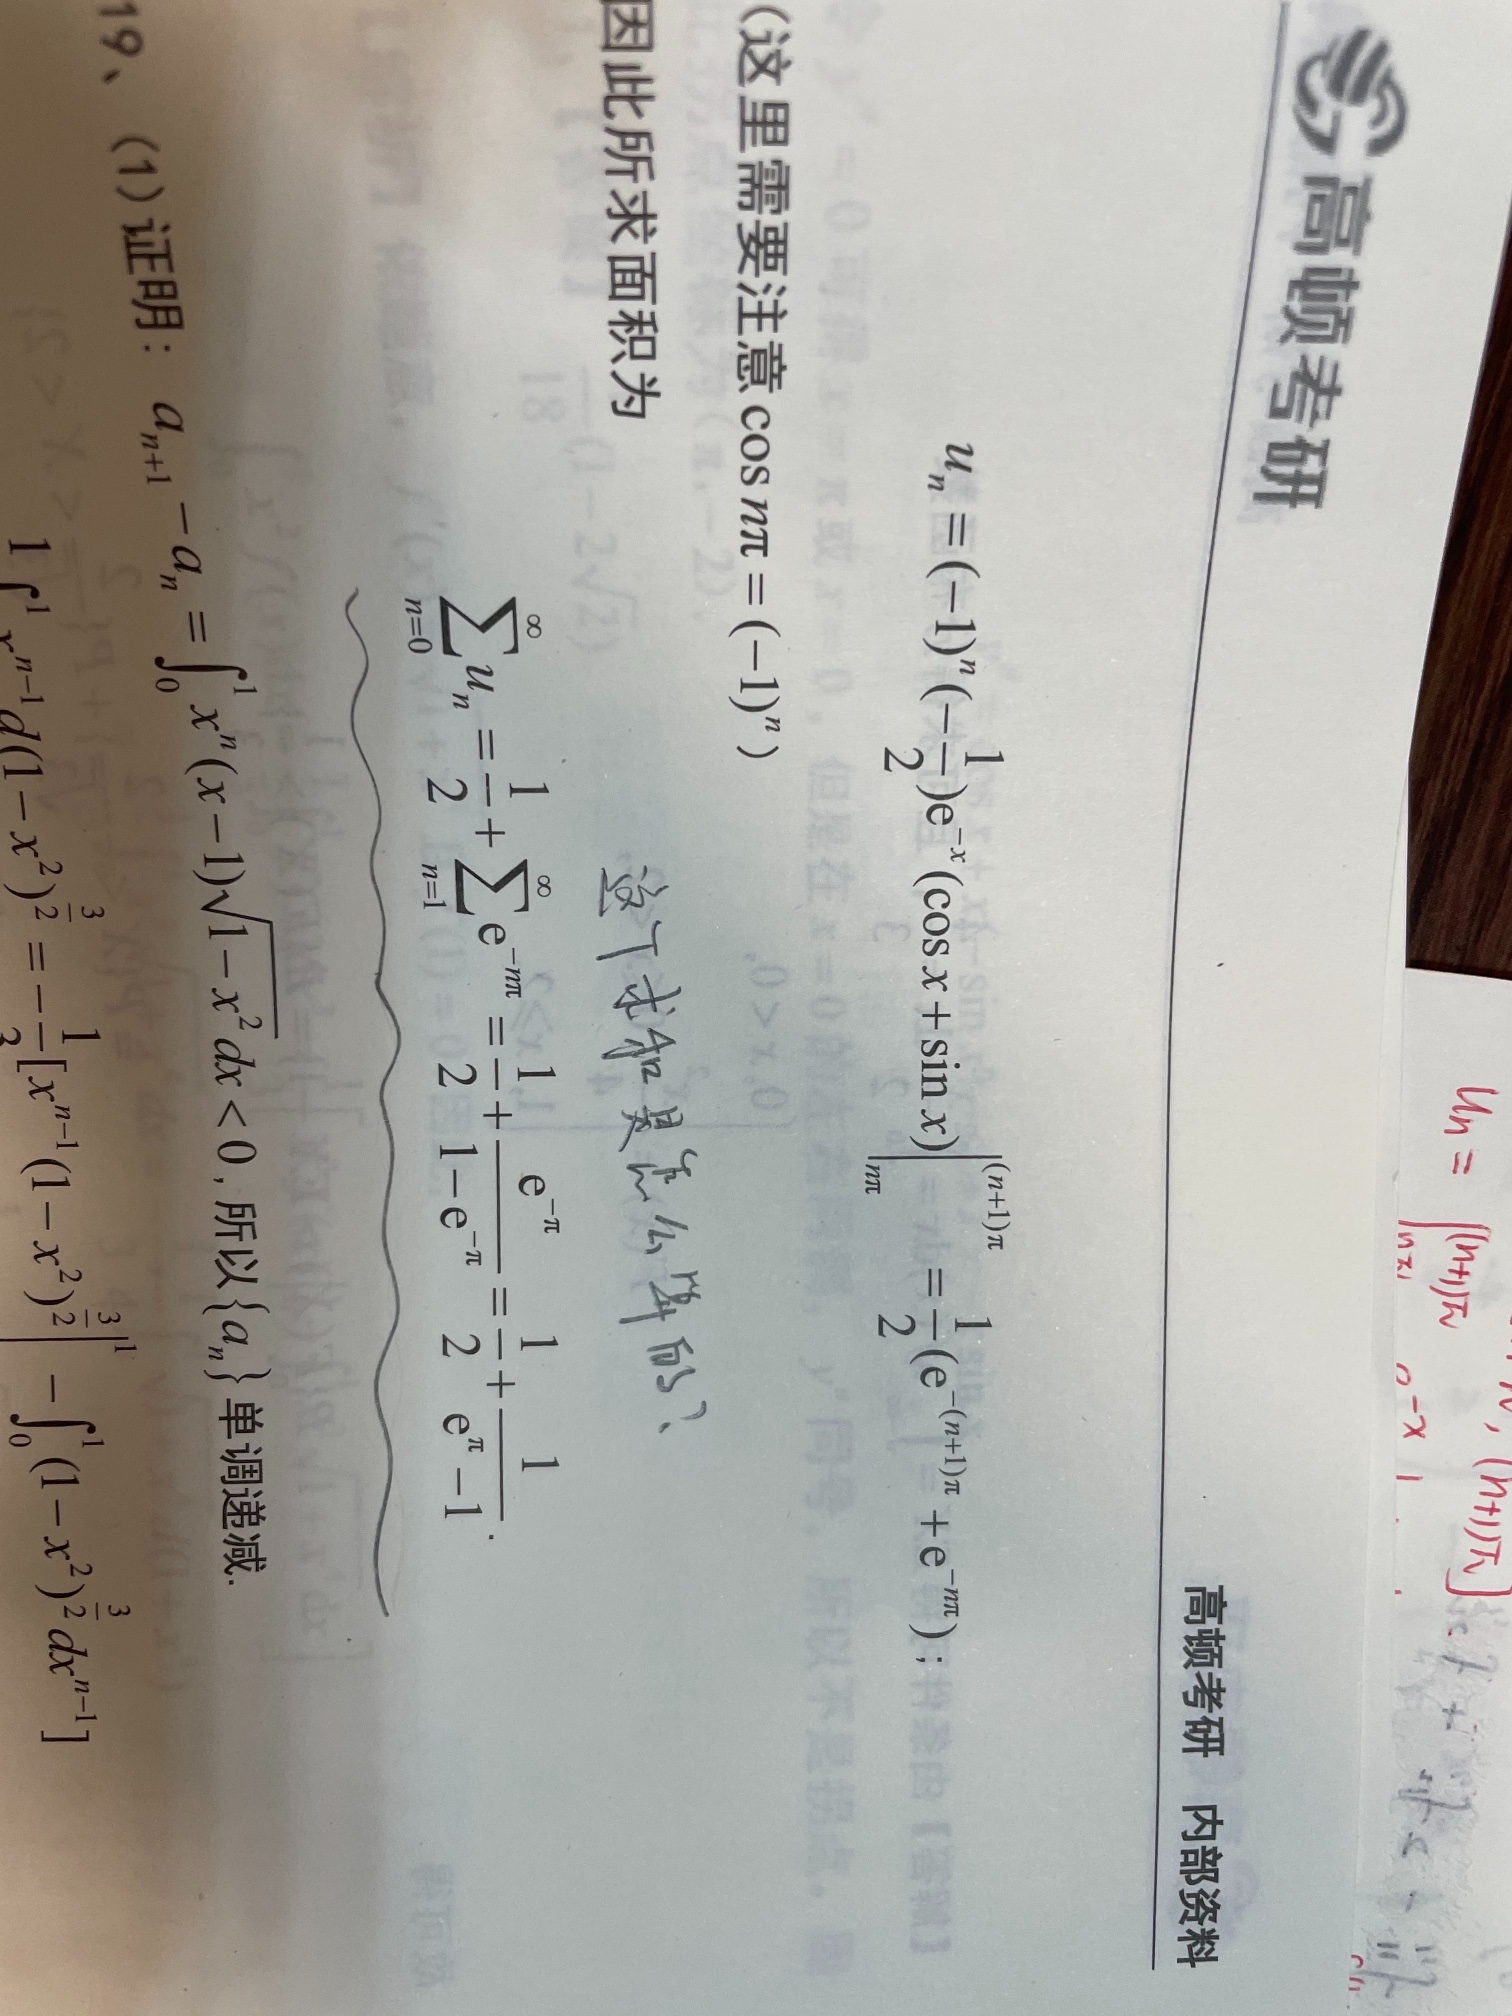 高顿考研
高顿考研 内部资料
uₙ = (−1)ⁿ(−1/2)e⁻ˣ(cos x + sin x)|_{nπ}^{(n+1)π} = 1/2(e^{−(n+1)π} + e^{−nπ});
(这里需要注意 cos nπ = (−1)ⁿ)
因此所求面积为
这个求和是怎么算的?
∑_{n=0}^{∞} uₙ = 1/2 + ∑_{n=1}^{∞} e^{−nπ} = 1/2 + e^{−π}/(1−e^{−π}) = 1/2 + 1/(e^{π}−1).
19、(1)证明: a_{n+1} − aₙ = ∫₀¹ xⁿ(x−1)√(1−x²)dx < 0, 所以{aₙ}单调递减.
x^{n−1}d(1−x²)^{3/2} = −1/3[x^{n−1}(1−x²)^{3/2}|¹ − ∫₀¹(1−x²)^{3/2}dx^{n−1}]
(n+1)π]
uₙ = ∫_{nπ}^{(n+1)π} e^{−x}